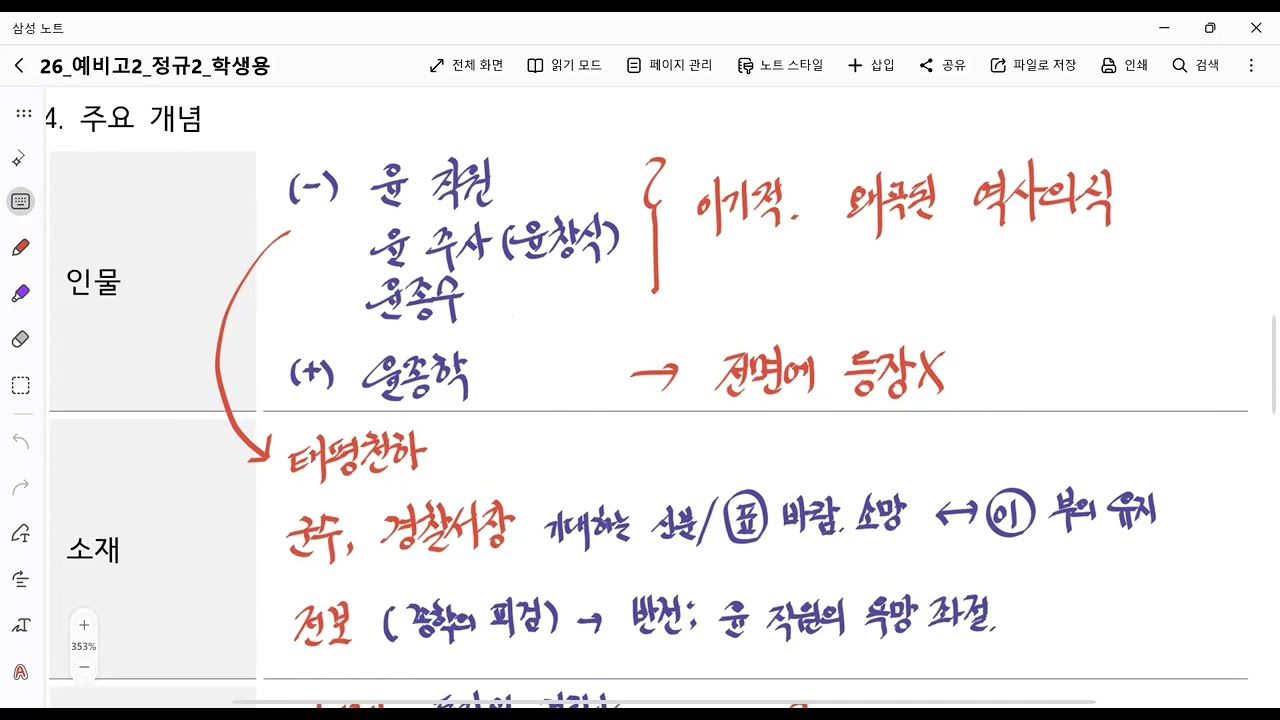 삼성 노트
26_예비고2_정규2_학생용 전체 화면 읽기 모드 페이지 관리 노트 스타일 삽입 공유 파일로 저장 인쇄 검색
4. 주요 개념
인물
(-) 윤 직원
윤 주사 (윤창식)
윤종수
이기적. 왜곡된 역사의식
(+) 윤종학 → 전면에 등장X
소재
태평천하
군수, 경찰서장 기대하는 신분/ 표 바람. 소망 ↔ 이 부의 유지
전보 (종학의 피검) → 반전: 윤 직원의 욕망 좌절.
353%